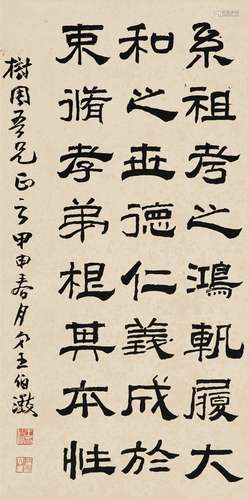 系祖考之鴻軌履大
和之世德仁義成於
束脩孝弟根其本性
樹周吾兄正之甲申春月弟王伯灝